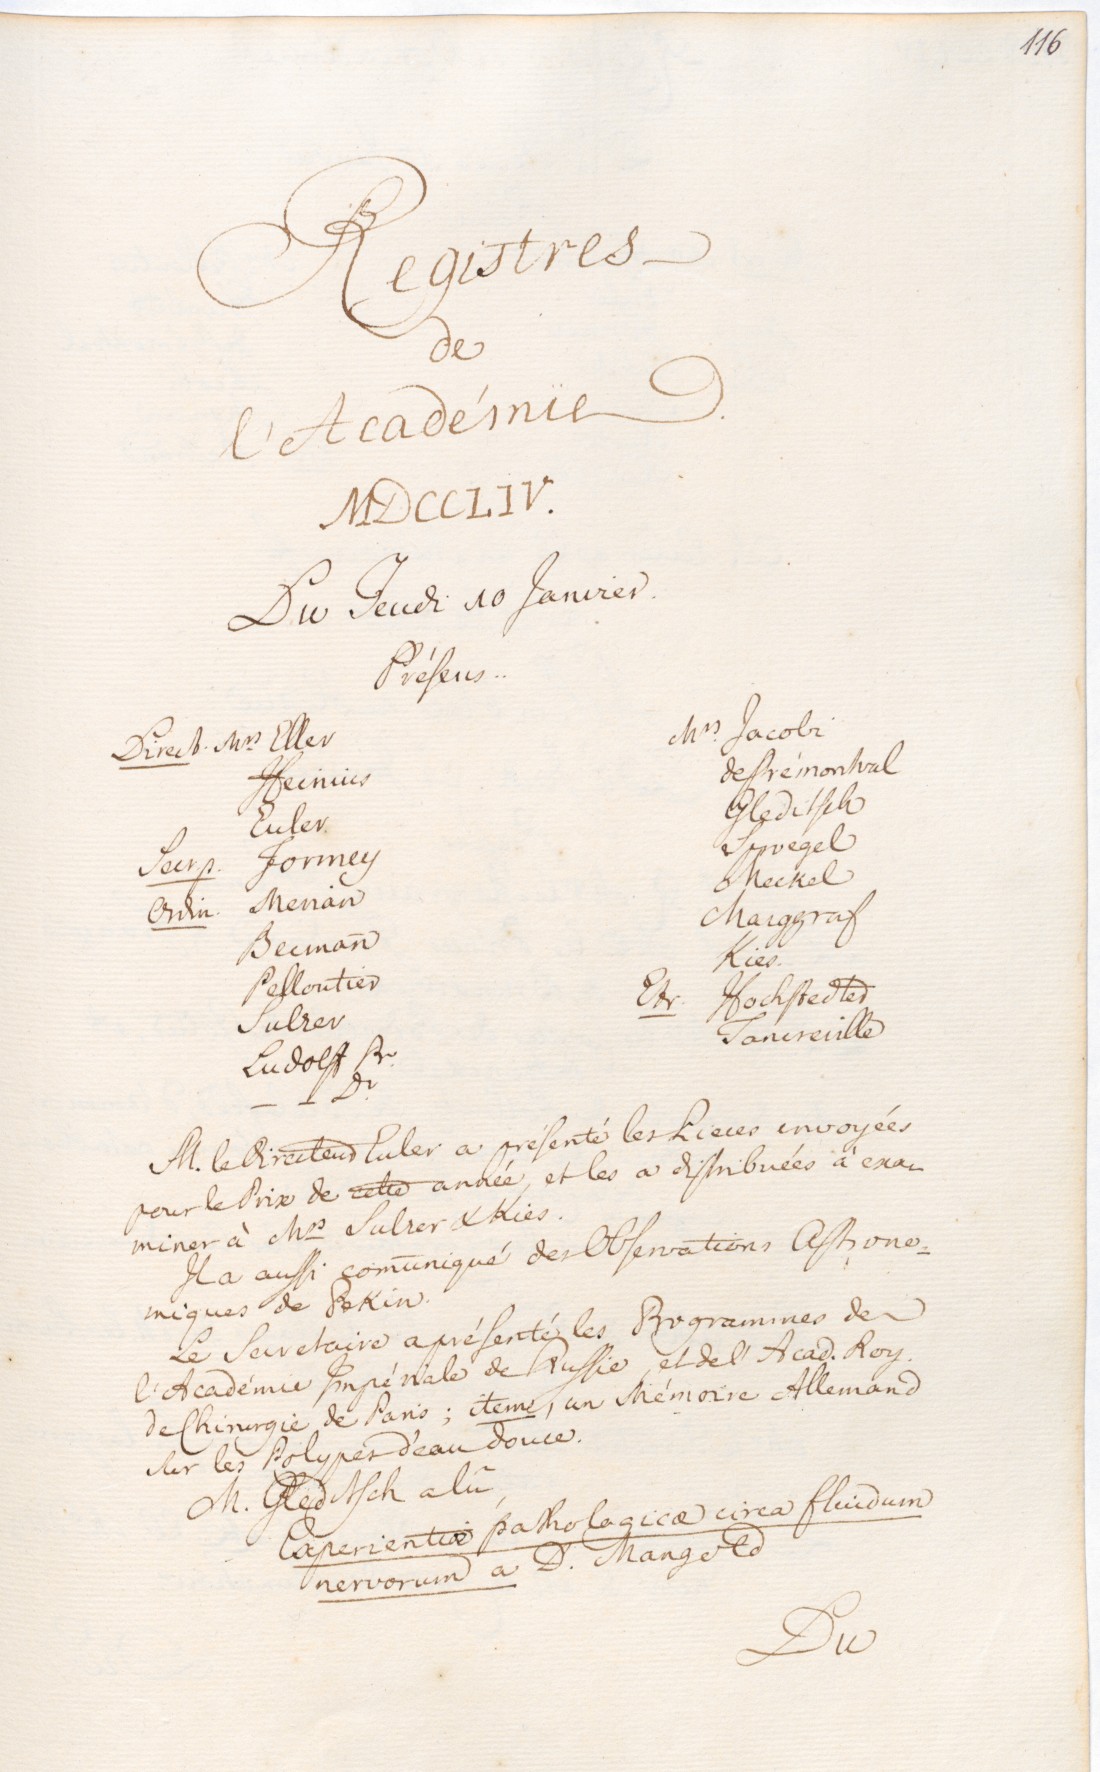 116
Registres
de
l'Académie
MDCCLIV.
Du Jeudi 10 Janvier.
Présens..
Direct. Mrs Eller
Heinius
Euler.
Secrp. Formey
Ordin. Merian
Becmañ
Pelloutier
Sulzer
Ludolff Pr.
— — Dr
Mrs. Jacobi
de Prémontval
Gleditsch
Sprogel
Meckel
Marggraf
Kies.
Etr. Hochstedter
Tancreville
M. le Directeur Euler a présenté les Pieces envoyées
pour le Prix de cette année, et les a distribuées à exa-
miner à Mrs Sulzer & Kies.
Il a aussi com̃uniqué des Observations Astrono=
miques de Pekin.
Le Secretaire a présenté les Programmes de
l'Académie Impériale de Russie, et de l'Acad. Roy.
de Chirurgie de Paris; item, un Mémoire Allemand
sur les Polypes d'eau douce.
M. Gleditsch a lû
Experientiæ pathologicæ circa fluidum
nervorum a D. Mangold
Du